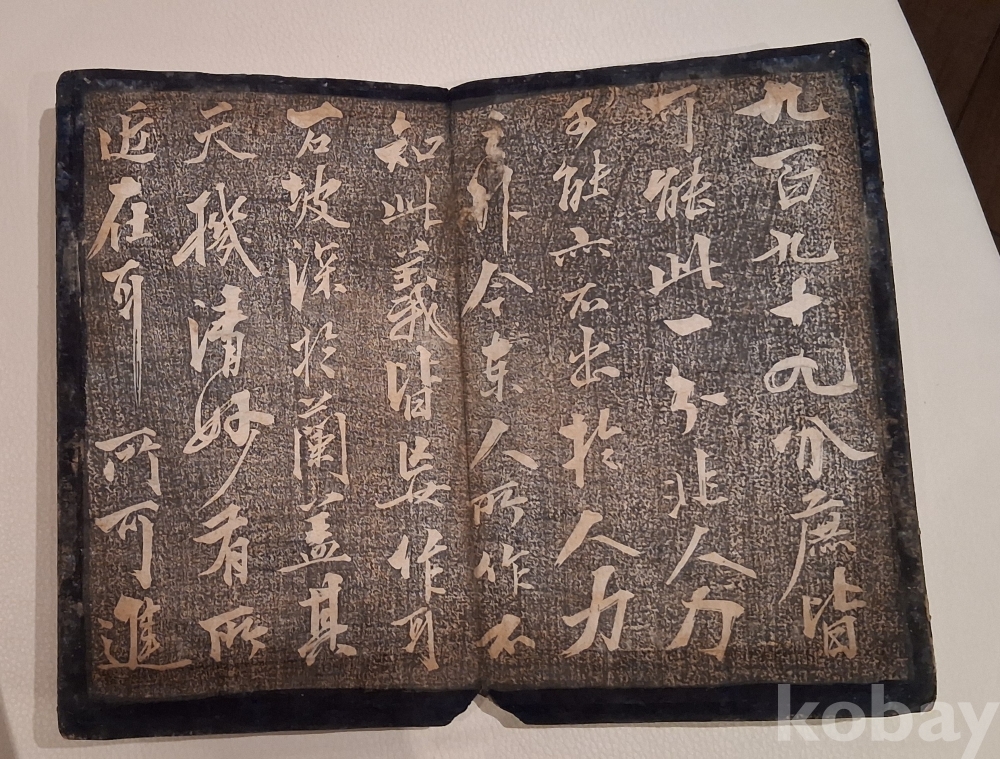 九百九十九分庶皆
可能此一分非人力
可能亦不出於人力
之外今東人所作不
知此義皆妄作耳
石坡深於蘭蓋其
天機清妙有所
近在耳 所可進
kobay